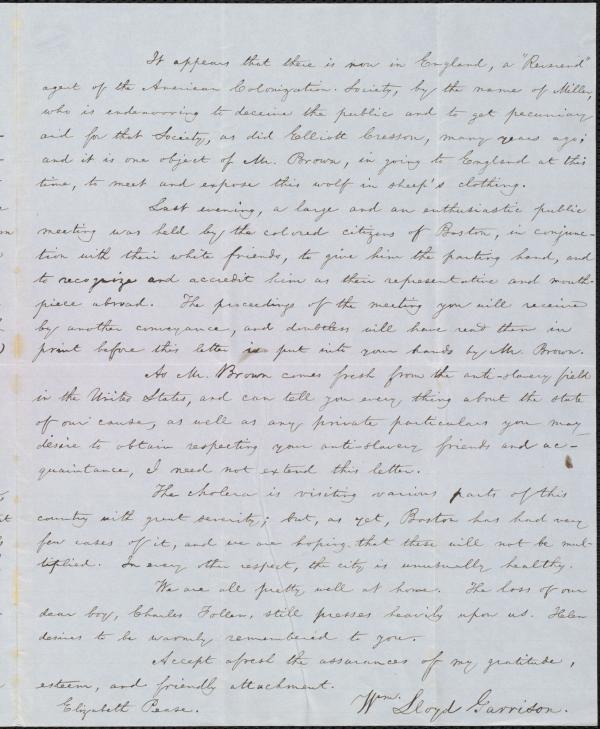 It appears that there is now in England, a "Reverend"
agent of the American Colonization Society, by the name of Miller,
who is endeavoring to deceive the public and to get pecuniary
aid for that Society, as did Elliott Cresson, many years ago;
and it is one object of Mr. Brown, in going to England at this
time, to meet and expose this wolf in sheep's clothing.
Last evening, a large and an enthusiastic public
meeting was held by the colored citizens of Boston, in conjunc-
tion with their white friends, to give him the parting hand, and
to recognize and accredit him as their representative and mouth-
piece abroad. The proceedings of the meeting you will receive
by another conveyance, and doubtless will have read them in
print before this letter is put into your hands by Mr. Brown.
As Mr. Brown comes fresh from the anti-slavery field
in the United States, and can tell you every thing about the state
of our cause, as well as any private particulars you may
desire to obtain respecting your anti-slavery friends and ac-
quaintance, I need not extend this letter.
The cholera is visiting various parts of this
country with great severity; but, as yet, Boston has had very
few cases of it, and we are hoping that these will not be mul-
tiplied. In every other respect, the city is unusually healthy.
We are all pretty well at home. The loss of our
dear boy, Charles Follen, still presses heavily upon us. Helen
desires to be warmly remembered to you.
Accept afresh the assurances of my gratitude,
esteem, and friendly attachment.
Elizabeth Pease. Wm. Lloyd Garrison.